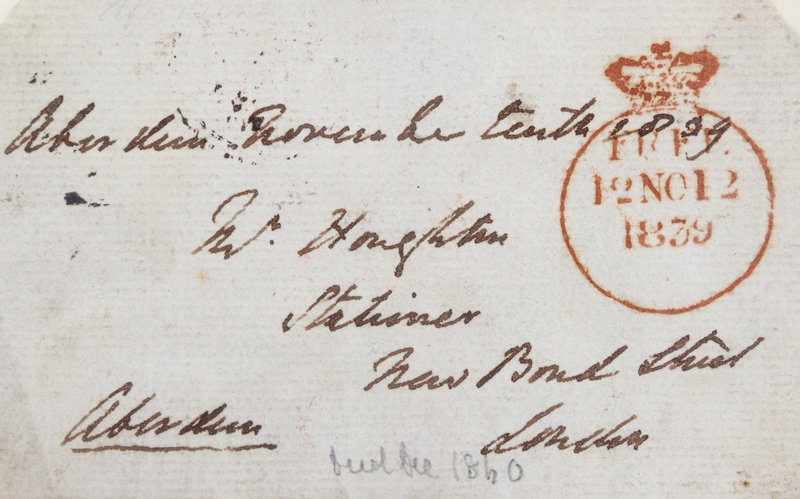 Aberdeen November tenth 1839
FREE
12 NO 12
1839
Mr. Houghton
Stationer
New Bond Street
London
Aberdeen
Died Dec 1860